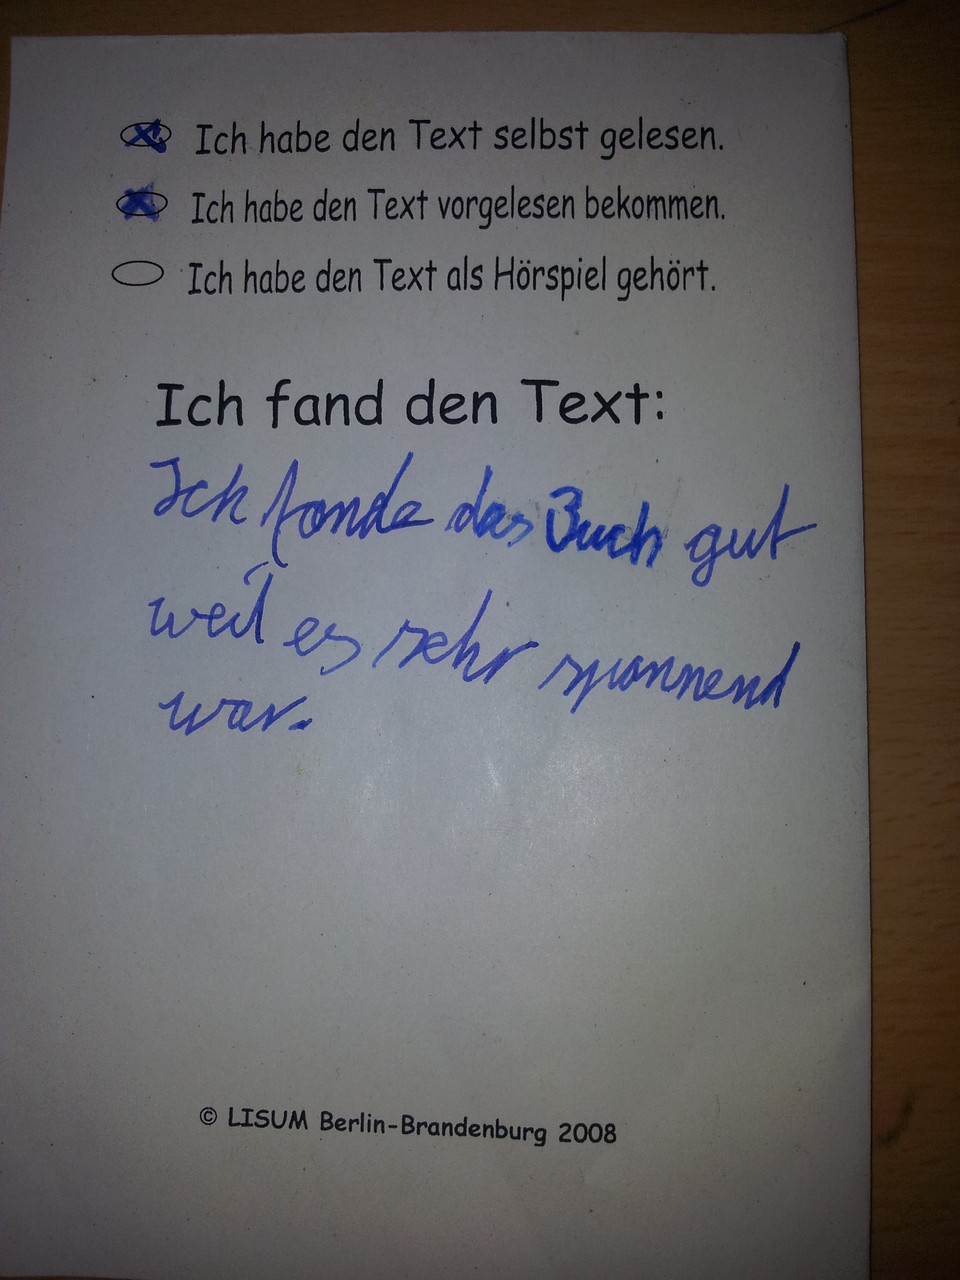 Ich habe den Text selbst gelesen.
Ich habe den Text vorgelesen bekommen.
Ich habe den Text als Hörspiel gehört.
Ich fand den Text:
Ich fande das Buch gut
weil es sehr spannend
war.
© LISUM Berlin-Brandenburg 2008